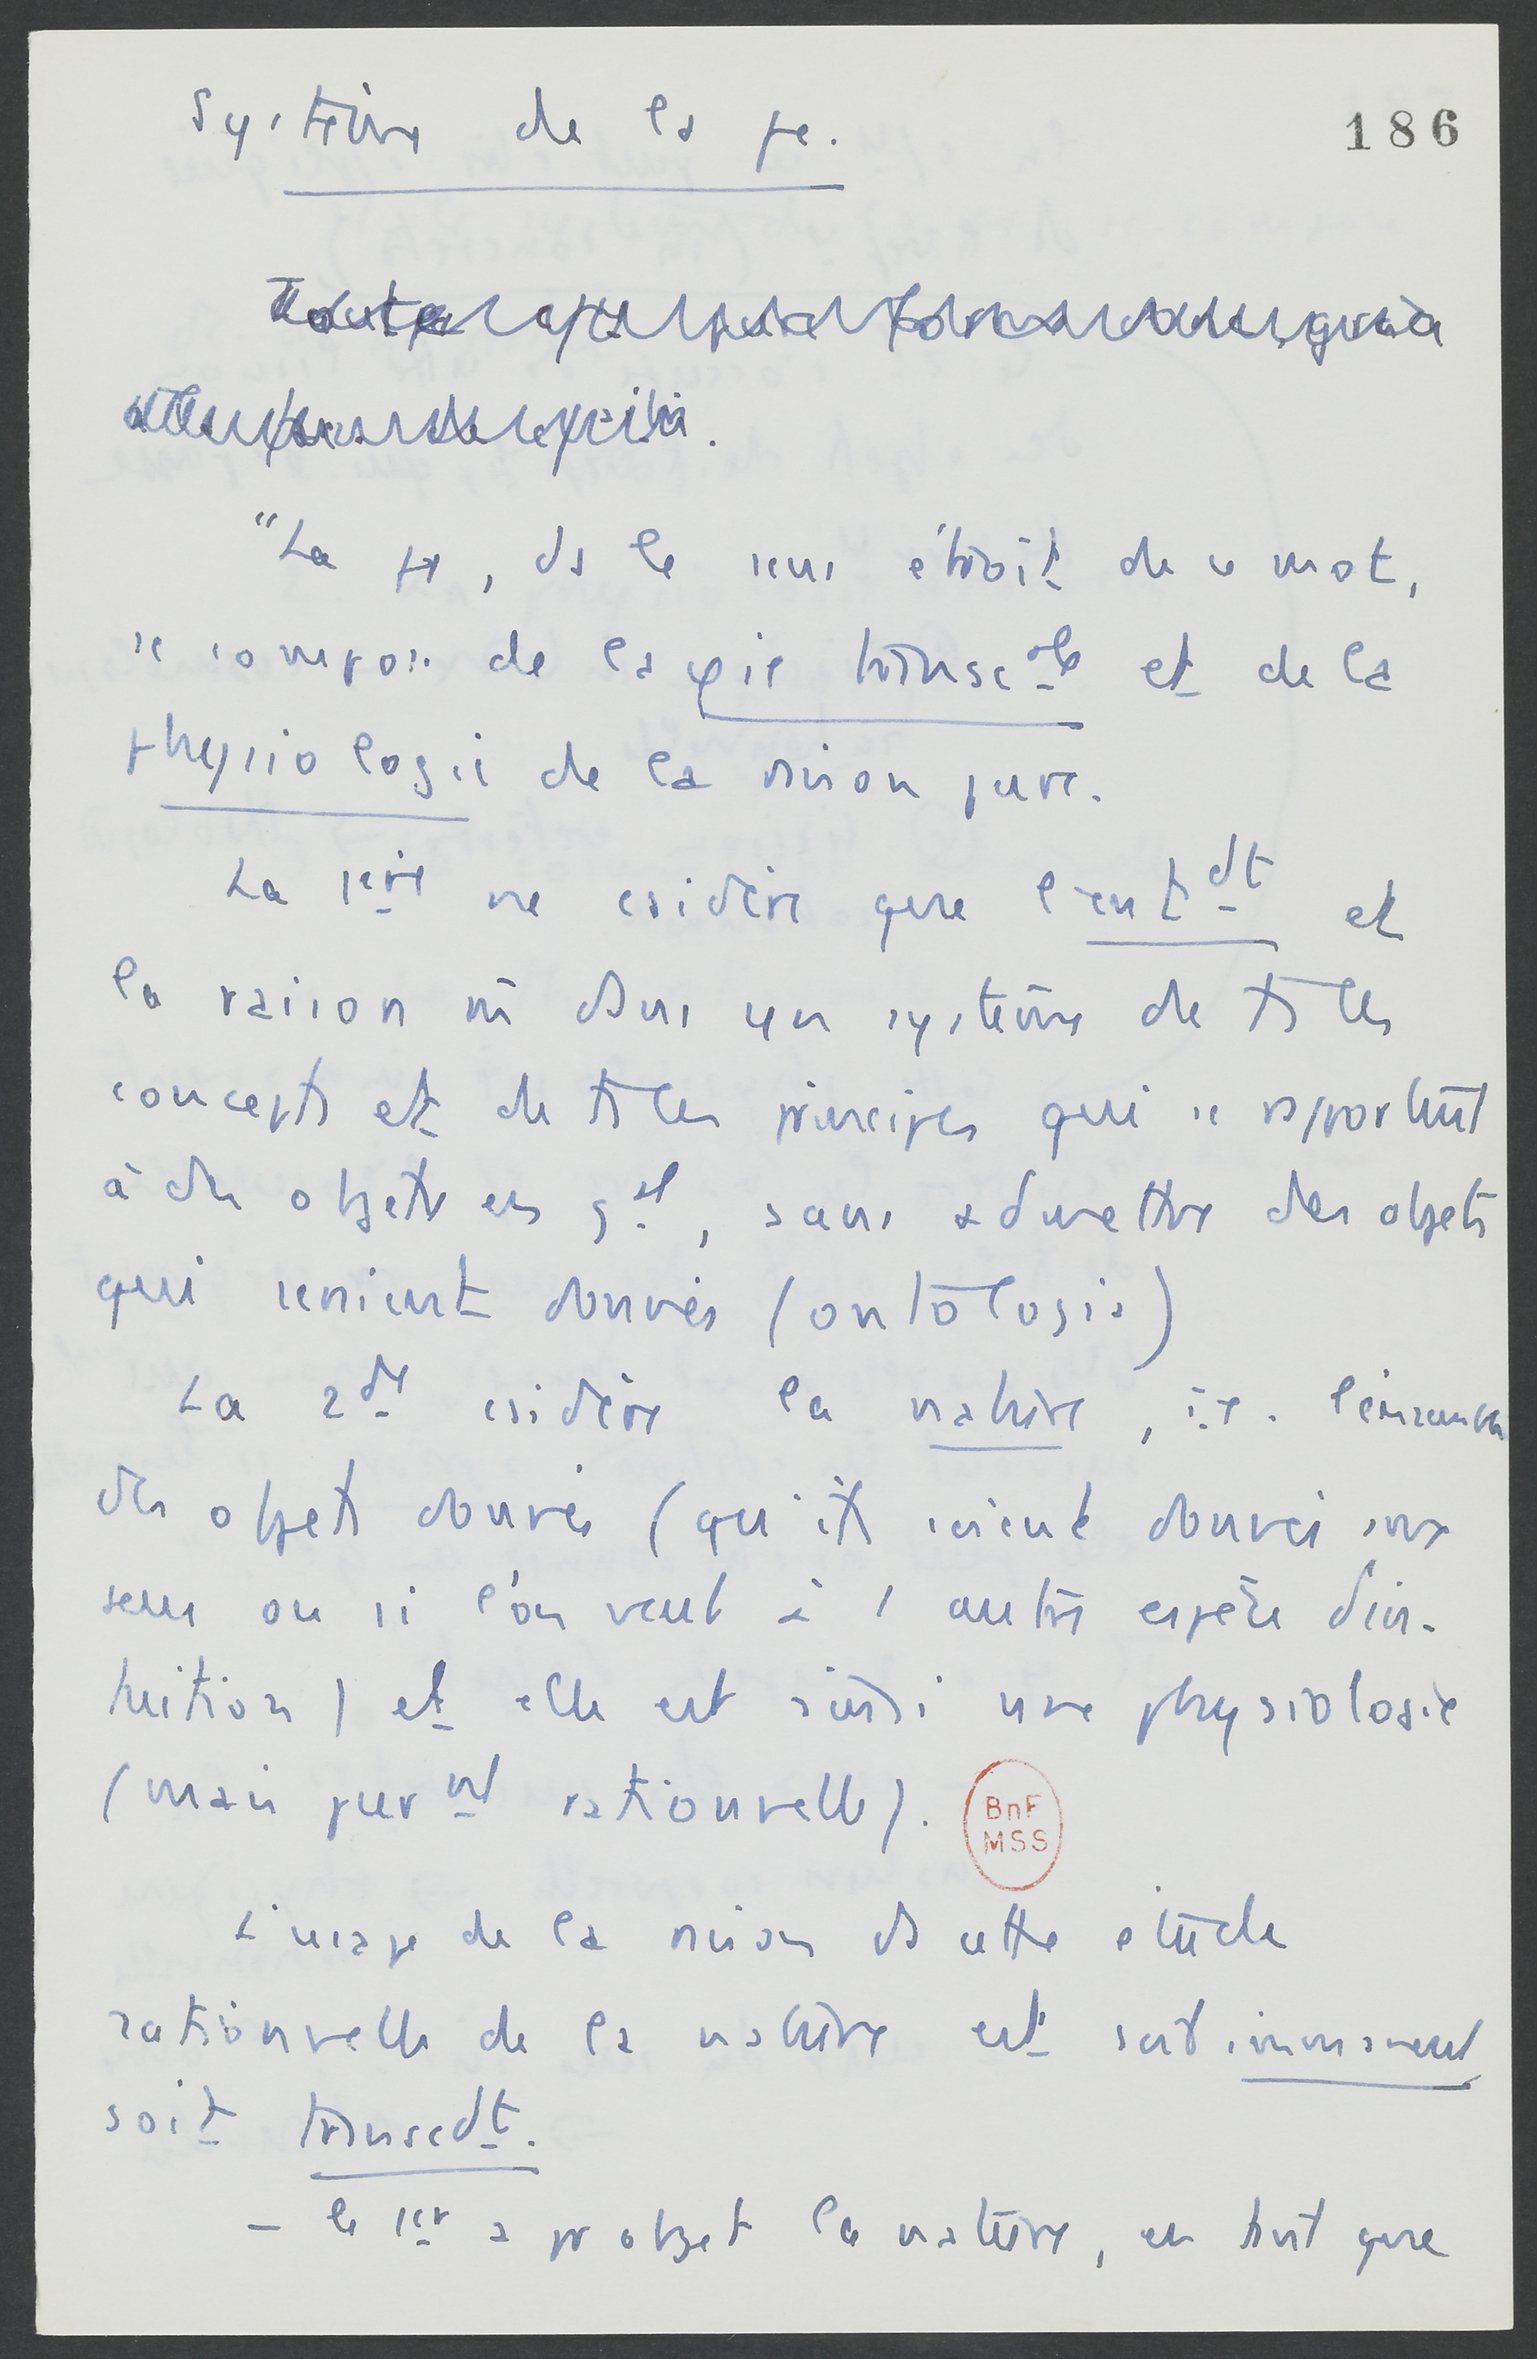 Système de la φe.
186
"La φe, ds le sens étroit de ce mot,
se compose de la φie transcale et de la
physiologie de la raison pure.
La 1ère ne csidère que l'entdt et
la raison m̄ dans un système de ts les
concepts et de ts les principes qui se rapportent
à des objets en gal, sans admettre des objets
qui seraient donnés (ontologie)
La 2de csidère la nature, i.e. l'ensemble
des objets donnés (qu'ils soient donnés aux
sens ou si l'on veut à 1 autre espèce d'in-
tuition) et elle est ainsi une physiologie
(mais purmt rationnelle).
BnF
MSS
L'usage de la raison ds cette étude
rationnelle de la nature est soit immanent
soit transcdt.
- le 1er a pr objet la nature, en tant que